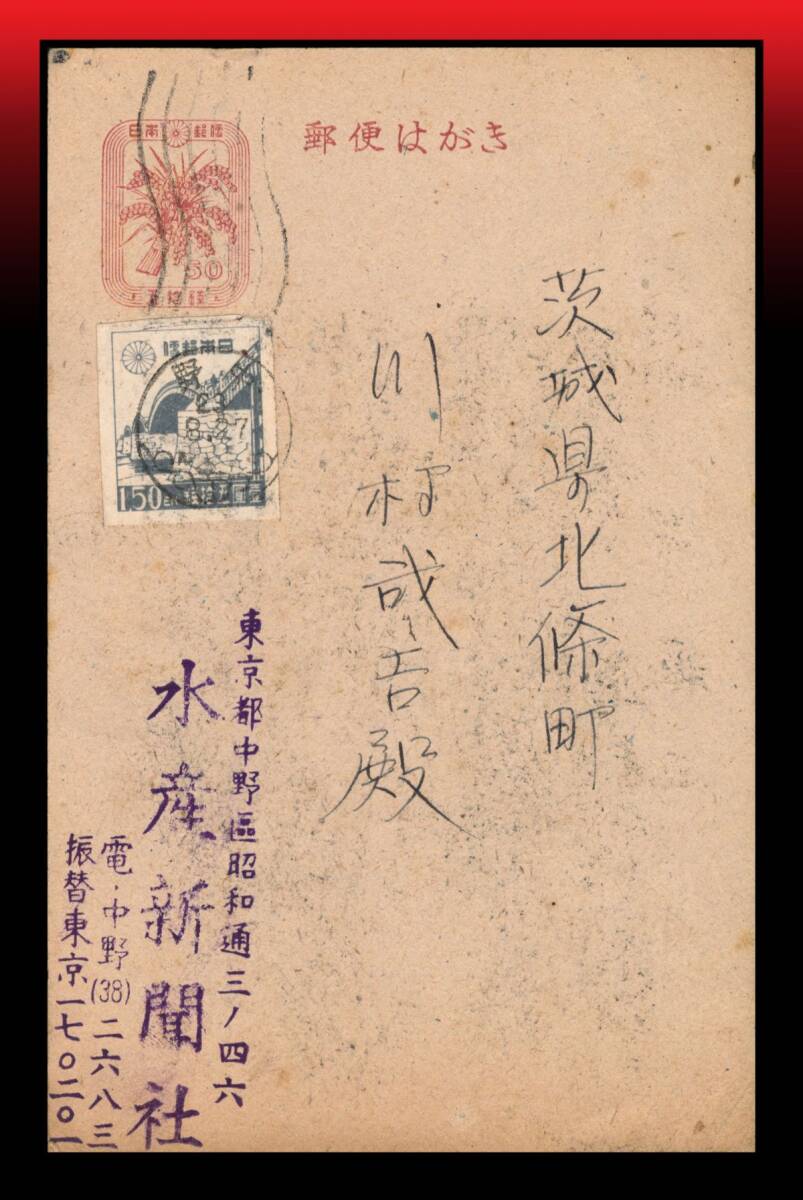 郵便はがき
日本郵便
50
五拾錢
便郵本日
1.50
野
23
8.27
茨城県北條町
川村哉吉殿
東京都中野區昭和通三ノ四六
水産新聞社
電・中野(38)二六八三
振替東京一七〇二〇一